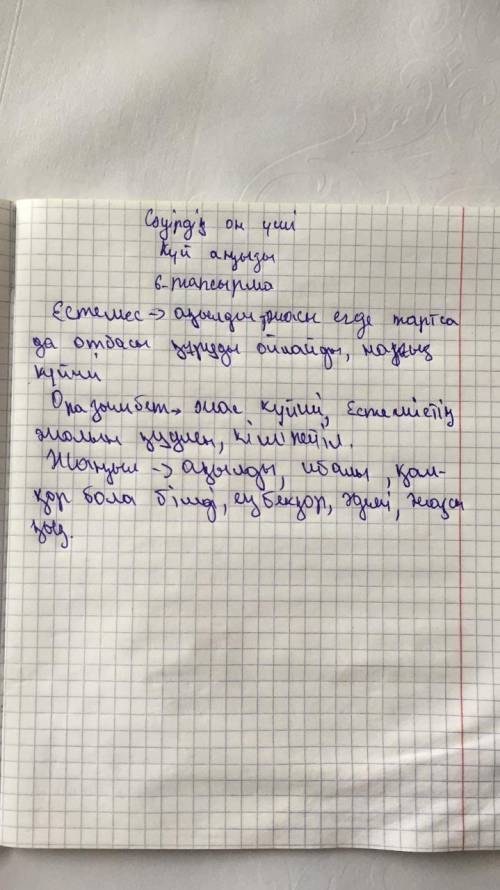 Сәуірдің он үші
Күй аңызы
6-тапсырма
Естемес → ақылды, жасы егде тартса
да отбасы құруды ойлайды, нағыз
күйші
Оразымбет → жас күйші, Естеместің
жолын қуушы, кішіпейіл.
Жаңыл → ақылды, ибалы, қам-
қор бола білді, еңбекқор, әдемі, жақсы
қыз.